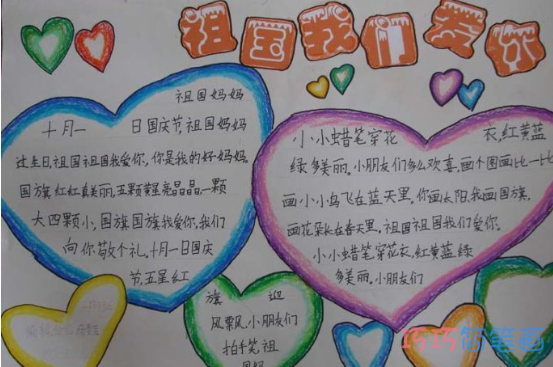 祖国我们爱你
祖国妈妈
十月一 日国庆节祖国妈妈
过生日,祖国祖国我爱你,你是我的好妈妈,
国旗红红真美丽,五颗黄星亮晶晶,一颗
大四颗小,国旗国旗我爱你,我们
向你敬个礼,十月一日国庆
节,五星红
小小蜡笔穿花 衣,红黄蓝
绿多美丽,小朋友们多么欢喜,画个图画比一比
画小小鸟飞在蓝天里,你画太阳,我画国旗,
画花朵长在春天里,祖国祖国我们爱你。
小小蜡笔穿花衣,红黄蓝绿
多美丽,小朋友们
旗 迎
风飘风,小朋友们
拍手笑,祖
巧巧简笔画